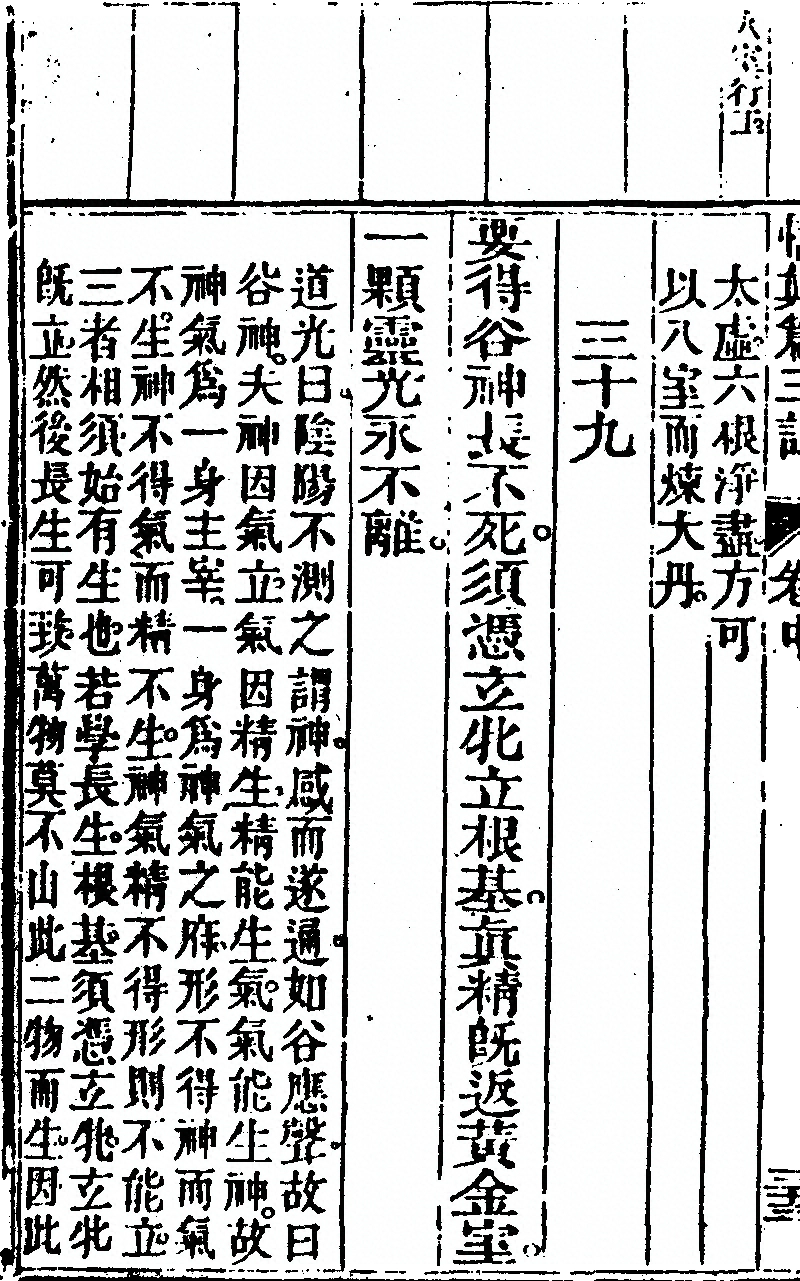 悟真篇三註 卷中 三五
太虛六根淨盡方可
以入室而煉大丹
三十九
要得谷神長不死須憑玄牝立根基真精既返黃金室
一顆靈光永不離
道光曰陰陽不測之謂神感而遂通如谷應聲故曰
谷神夫神因氣立氣因精生精能生氣氣能生神故
神氣爲一身主宰一身爲神氣之府形不得神而氣
不生神不得氣而精不生神氣精不得形則不能立
三者相須始有生也若學長生根基須憑玄牝玄牝
既立然後長生可致萬物莫不由此二物而生因此